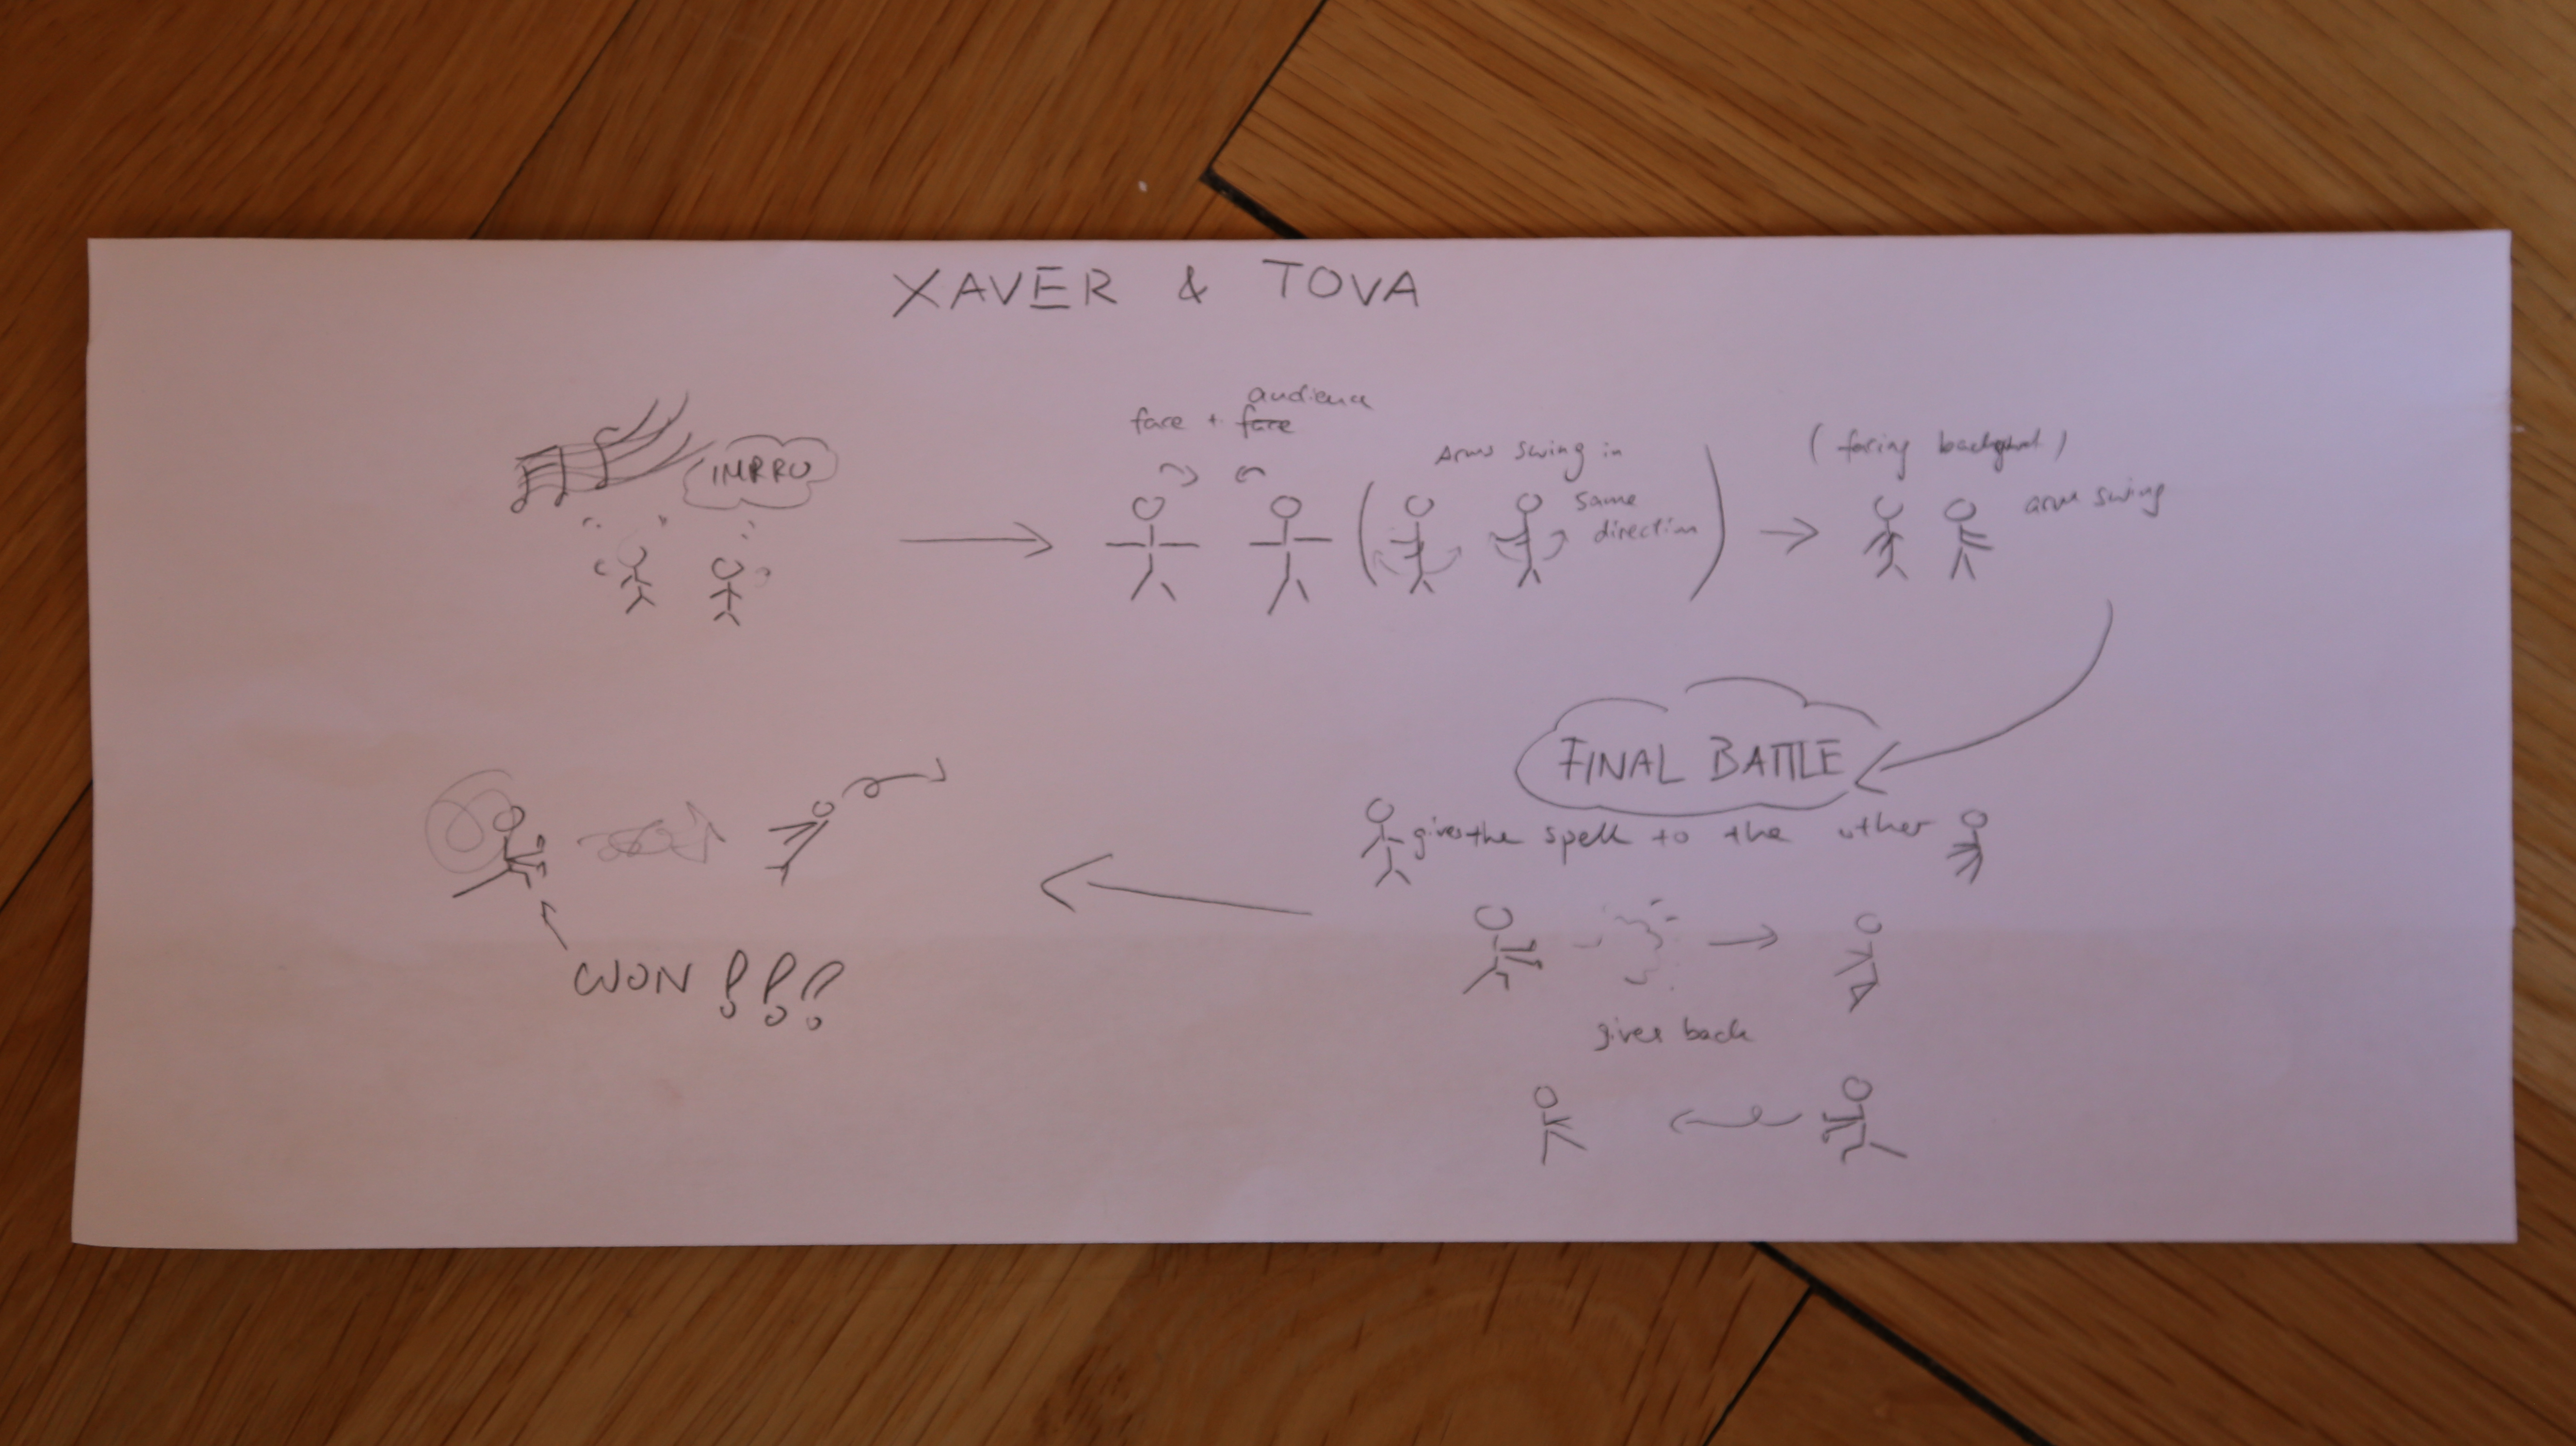 XAVER & TOVA
IMPRO
audience
face + face
Arms swing in
same
direction
(facing background)
arm swing
FINAL BATTLE
gives the spell to the other
gives back
WON !!!